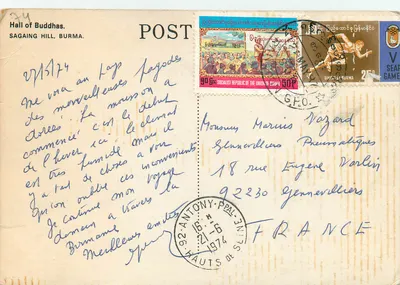 74
Hall of Buddhas.
SAGAING HILL, BURMA.
POST
27/5/74
Me voici au pays
des merveilleuses pagodes
dorées. La mousson a
commencé c'est le début
de l'hiver ici. le climat
est très humide mais il
y a tant de choses à voir
qu'on oublie ces inconvénients
Je continue mon voyage
demain à travers la
Birmanie
Meilleures amitiés
50P
SOCIALIST REPUBLIC OF THE UNION OF BURMA
G.P.O.
25
V
SEAP
GAMES
Monsieur Marius Vazard
Gennevilliers Pneumatiques
18 rue Eugène Varlin
92230 Gennevilliers
FRANCE
92-ANTONY-PPAL-
16 H
21-6
1974
HAUTS DE SEINE